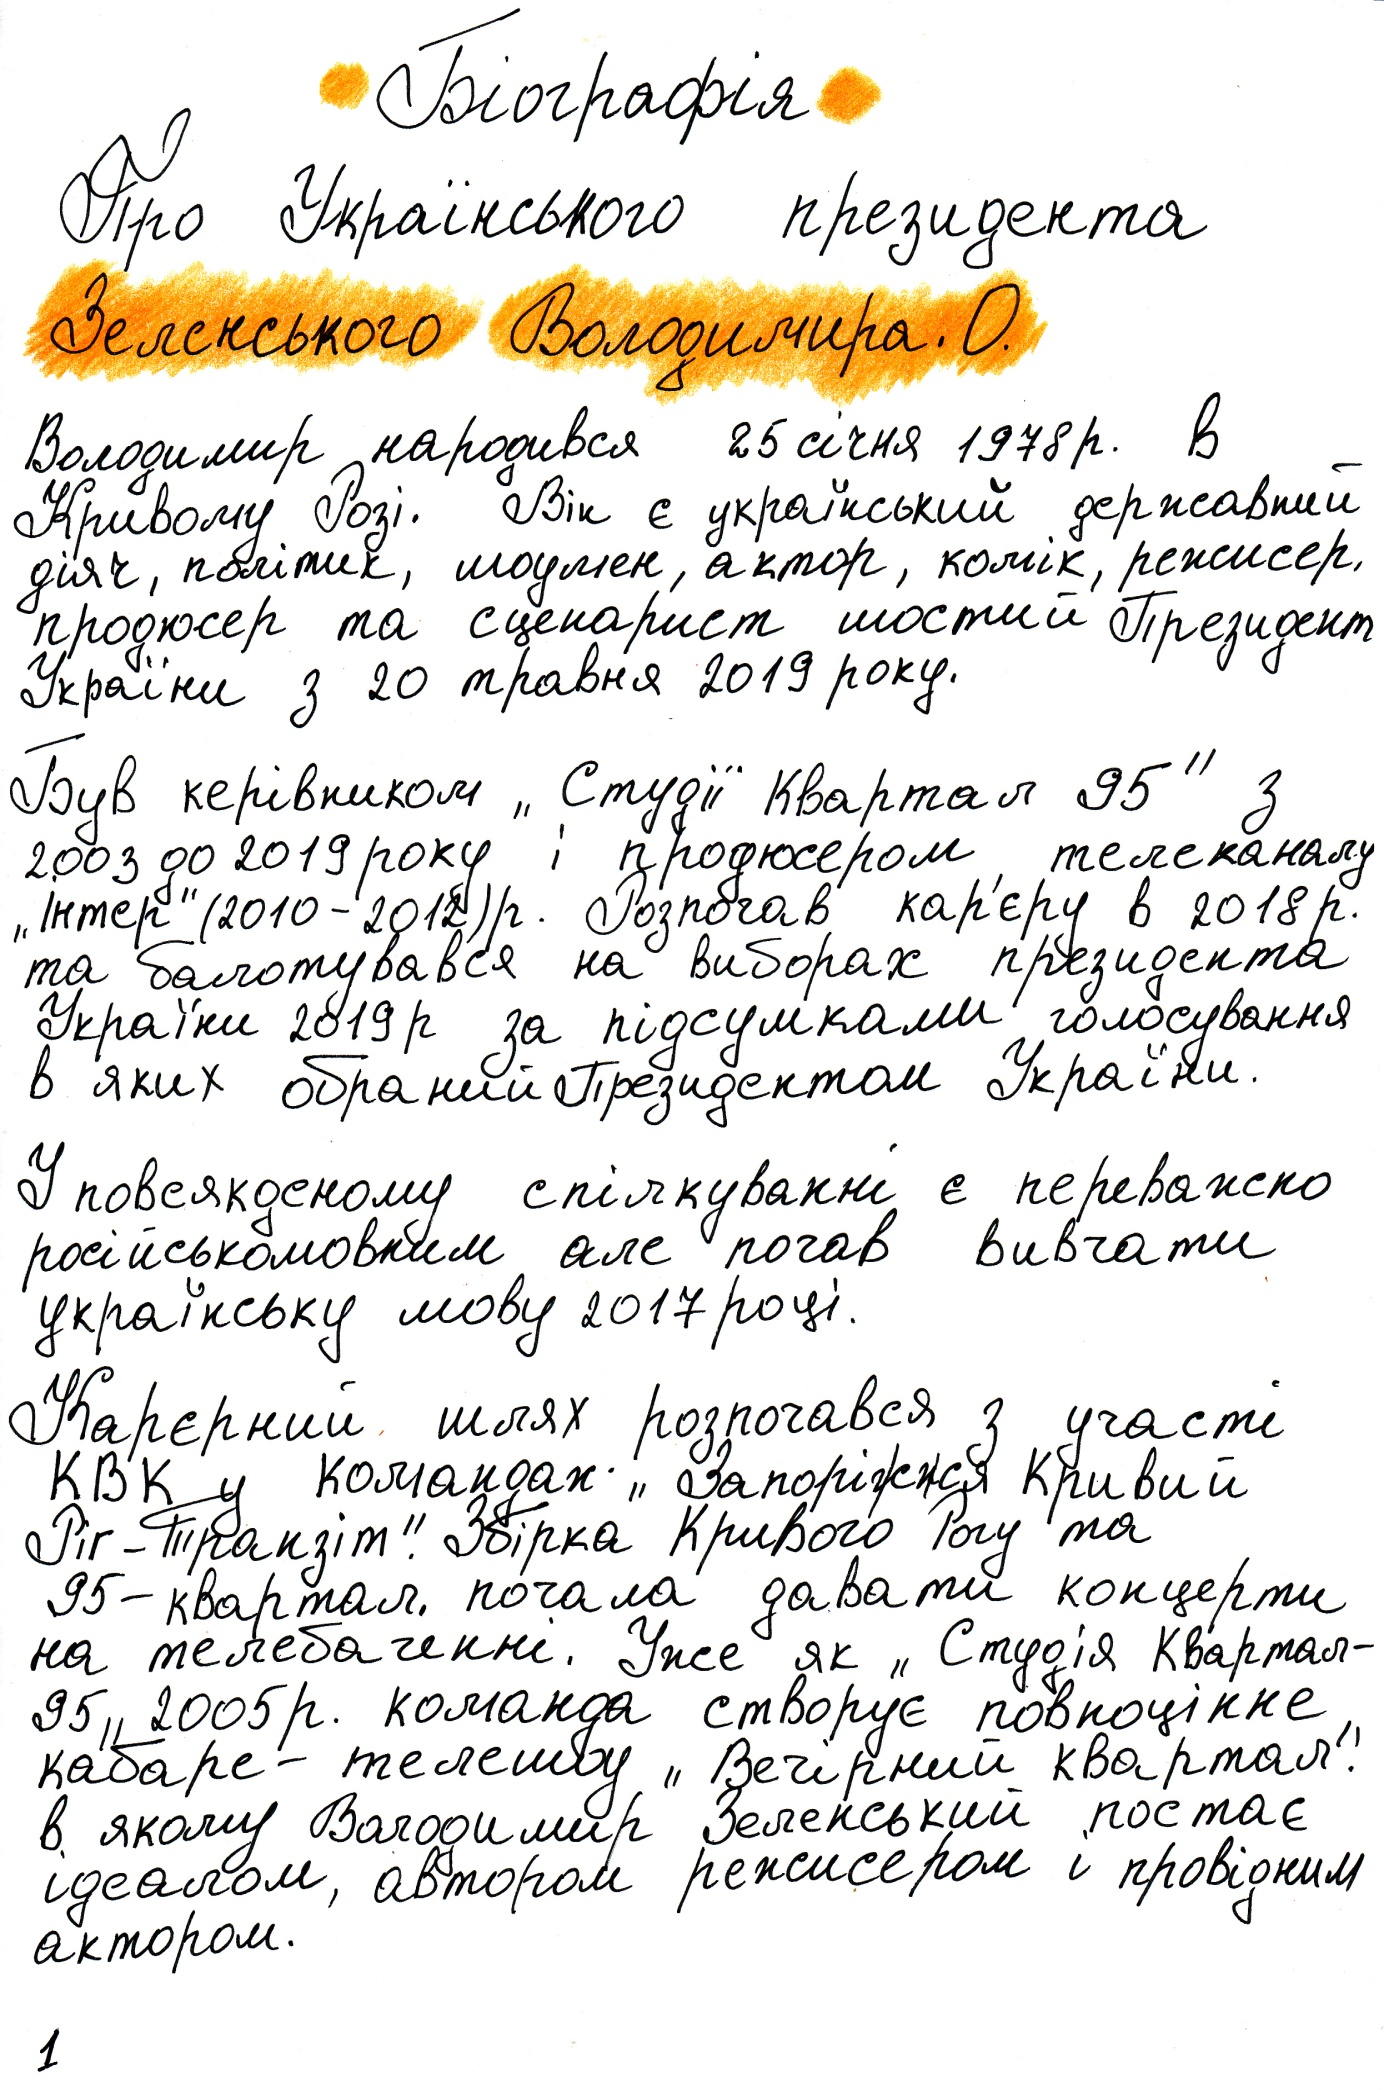 Біографія
Про Українського президента
Зеленського Володимира. О.
Володимир народився 25 січня 1978р. В
Кривому Розі. Він є український державний
діяч, політик, шоумен, актор, комік, режисер,
продюсер та сценарист шостий Президент
України з 20 травня 2019 року.
Був керівником „Студії Квартал 95" з
2003 до 2019 року і продюсером телеканалу
„Інтер" (2010-2012)р. Розпочав кар'єру в 2018р.
та балотувався на виборах президента
України 2019р за підсумками голосування
в яких обраний Президентом України.
У повсякденому спілкуванні є переважно
російськомовним але почав вивчати
українську мову 2017 році.
Карєрний шлях розпочався з участі
КВК у командах „Запоріжжя Кривий
Ріг-Транзіт". Збірка Кривого Рогу та
95-квартал. почала давати концерти
на телебаченні. Уже як „Студія Квартал-
95„ 2005р. команда створує повноцінне
кабаре-телешоу „Вечірний квартал".
в якому Володимир Зеленський постає
ідеалом, автором режисером і провідним
актором.
1